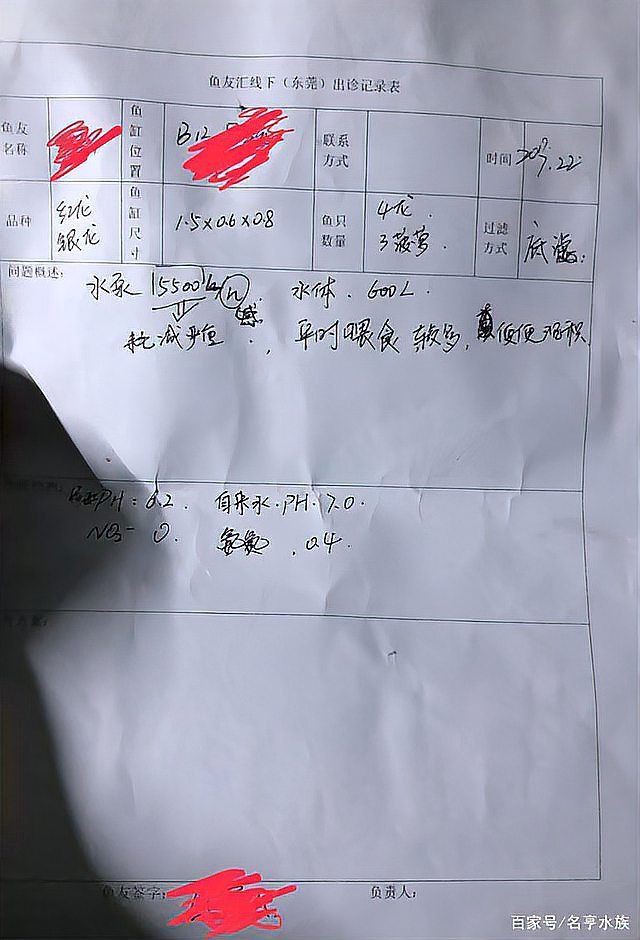 鱼友汇线下（东莞）出诊记录表
鱼友名称 鱼缸位置 B12 联系方式 时间
品种 红龙 银龙 鱼缸尺寸 1.5×0.6×0.8 鱼只数量 4龙. 3菠萝. 过滤方式 底滤.
问题概述：
水泵 15500L/h 水体. 600L.
平时喂食较多, 粪便
PH：6.2 自来水.PH.7.0.
NO3- 0. 氨氮 .0.4.
鱼友签字： 负责人：
百家号/名亨水族